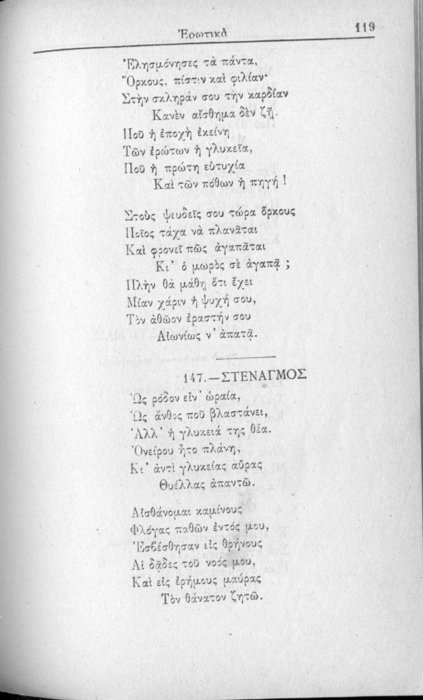 Ἐρωτικὰ
119
Ἐλησμόνησες τὰ πάντα,
Ὅρκους, πίστιν καὶ φιλίαν·
Στὴν σκληράν σου τὴν καρδίαν
Κανὲν αἴσθημα δὲν ζῇ.
Ποῦ ἡ ἐποχὴ ἐκείνη
Τῶν ἐρώτων ἡ γλυκεῖα,
Ποῦ ἡ πρώτη εὐτυχία
Καὶ τῶν πόθων ἡ πηγή !
Στοὺς ψευδεῖς σου τώρα ὅρκους
Ποῖος τάχα νὰ πλανᾶται
Καὶ φρονεῖ πῶς ἀγαπᾶται
Κι' ὁ μωρὸς σὲ ἀγαπᾷ ;
Πλὴν θὰ μάθῃ ὅτι ἔχει
Μίαν χάριν ἡ ψυχή σου,
Τὸν ἀθῶον ἐραστήν σου
Αἰωνίως ν' ἀπατᾷ.
147.—ΣΤΕΝΑΓΜΟΣ
Ὡς ρόδον εἶν' ὡραία,
Ὡς ἄνθος ποῦ βλαστάνει,
Ἀλλ' ἡ γλυκειά της θέα.
Ὀνείρου ἦτο πλάνη,
Κι' ἀντὶ γλυκείας αὔρας
Θυέλλας ἀπαντῶ.
Αἰσθάνομαι καμίνους
Φλόγας παθῶν ἐντός μου,
Ἐσβέσθησαν εἰς θρήνους
Αἱ δᾷδες τοῦ νοός μου,
Καὶ εἰς ἐρήμους μαύρας
Τὸν θάνατον ζητῶ.